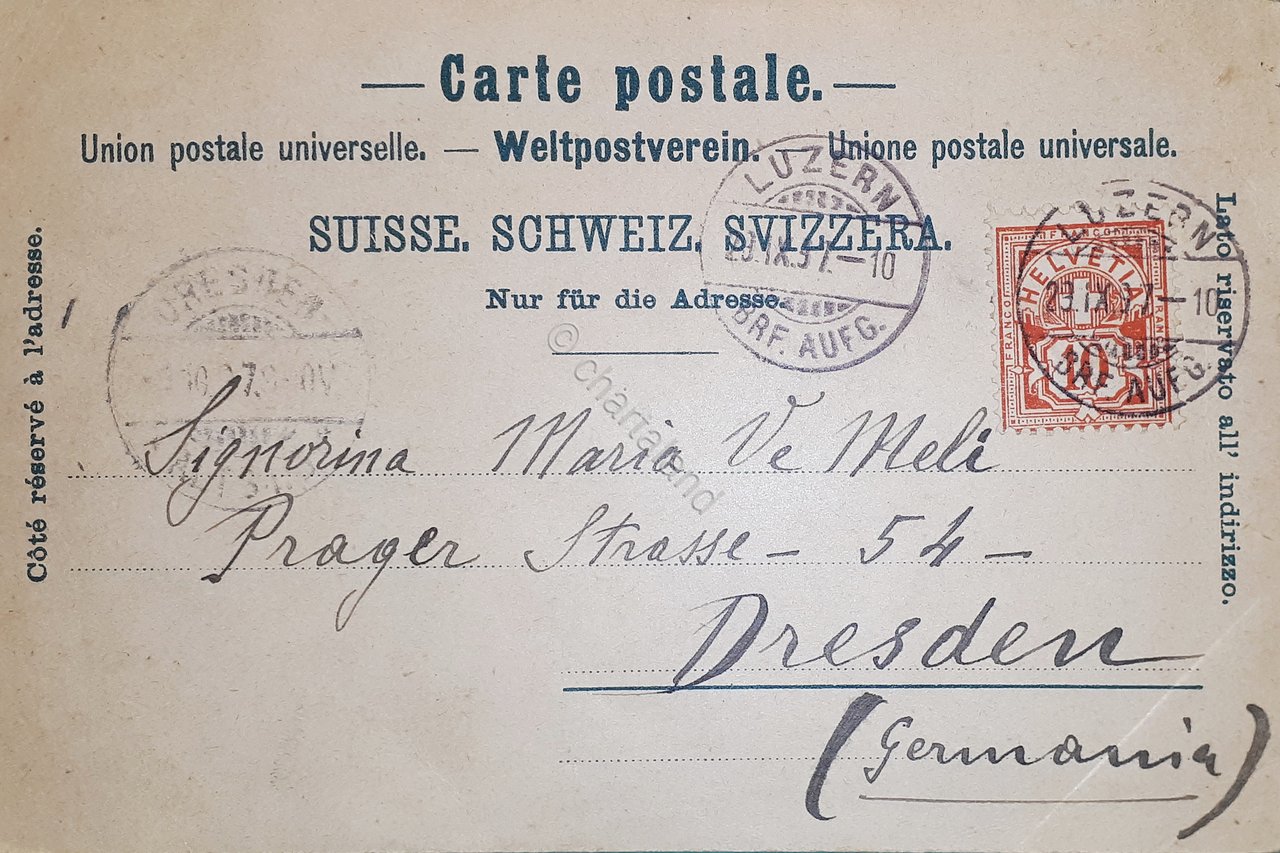 — Carte postale. —
Union postale universelle. — Weltpostverein. — Unione postale universale.
SUISSE. SCHWEIZ. SVIZZERA.
Nur für die Adresse.
Côté réservé à l'adresse.
Lato riservato all' indirizzo.
LUZERN
BRF. AUFG.
LUZERN
BRF. AUFG.
HELVETIA
FRANCO
10
DRESDEN
© chartaland
Signorina Maria De Meli
Prager Strasse – 54 –
Dresden
(Germania)